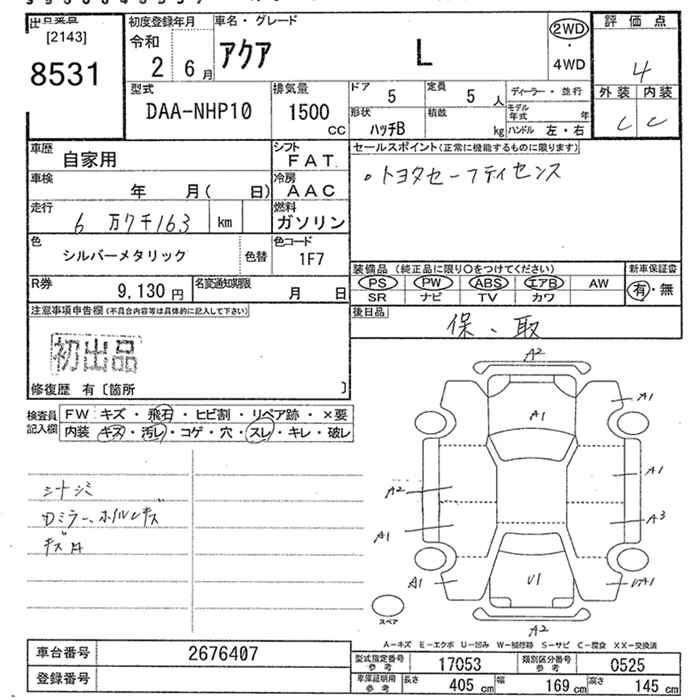 [2143]
8531
初度登録年月
令和
2 6月
車名・グレード
アクア L
2WD
・
4WD
評価点
4
外装 内装
C C
型式
DAA-NHP10
排気量
1500
CC
ドア 5
定員 5 人
ディーラー・並行
形状 ハッチB
積数 kg
モデル年式 年
ハンドル 左・右
車歴 自家用
シフト FAT
車検 年 月( 日)
冷房 AAC
走行 6 万7千163 km
燃料 ガソリン
色 シルバーメタリック 色替
色コード 1F7
R券 9,130 円
名変通知期限 月 日
セールスポイント(正常に機能するものに限ります)
。トヨタセーフティセンス
装備品(純正品に限り○をつけてください)
PS PW ABS エアB AW
SR ナビ TV カワ
新車保証書
有・無
後日品
保、取
注意事項申告欄(不具合内容等は具体的に記入して下さい)
初出品
修復歴 有〔箇所 〕
検査員記入欄
FW キズ・飛石・ヒビ割・リペア跡・×要
内装 キズ・汚レ・コゲ・穴・スレ・キレ・破レ
シートシミ
Dミラー、ホイルキズ
A2
A1
A1
A2
A1
A1
A3
A1
U1
UA1
A2
スペア
A-キズ E-エクボ U-凹み W-補修跡 S-サビ C-腐食 XX-交換済
車台番号 2676407
登録番号
型式指定番号参考 17053
類別区分番号参考 0525
車庫証明用参考 長さ 405 cm 幅 169 cm 高さ 145 cm